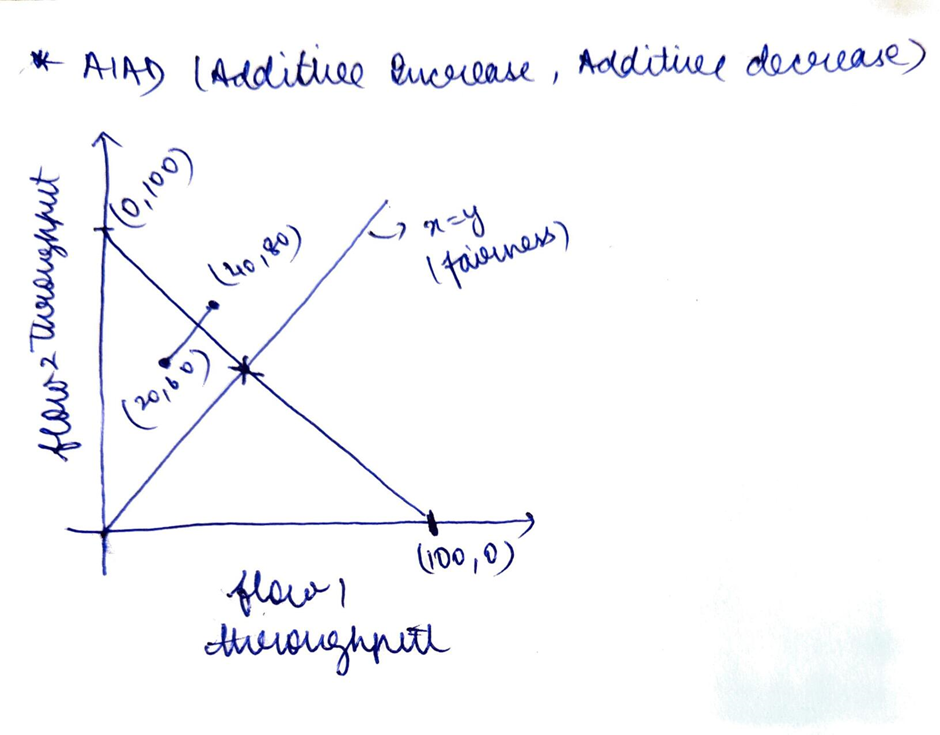 * AIAD (Additive Increase, Additive decrease)
(0,100)
(40,80)
x=y
(fairness)
flow 2 Throughput
(20,60)
(100,0)
flow 1
throughput